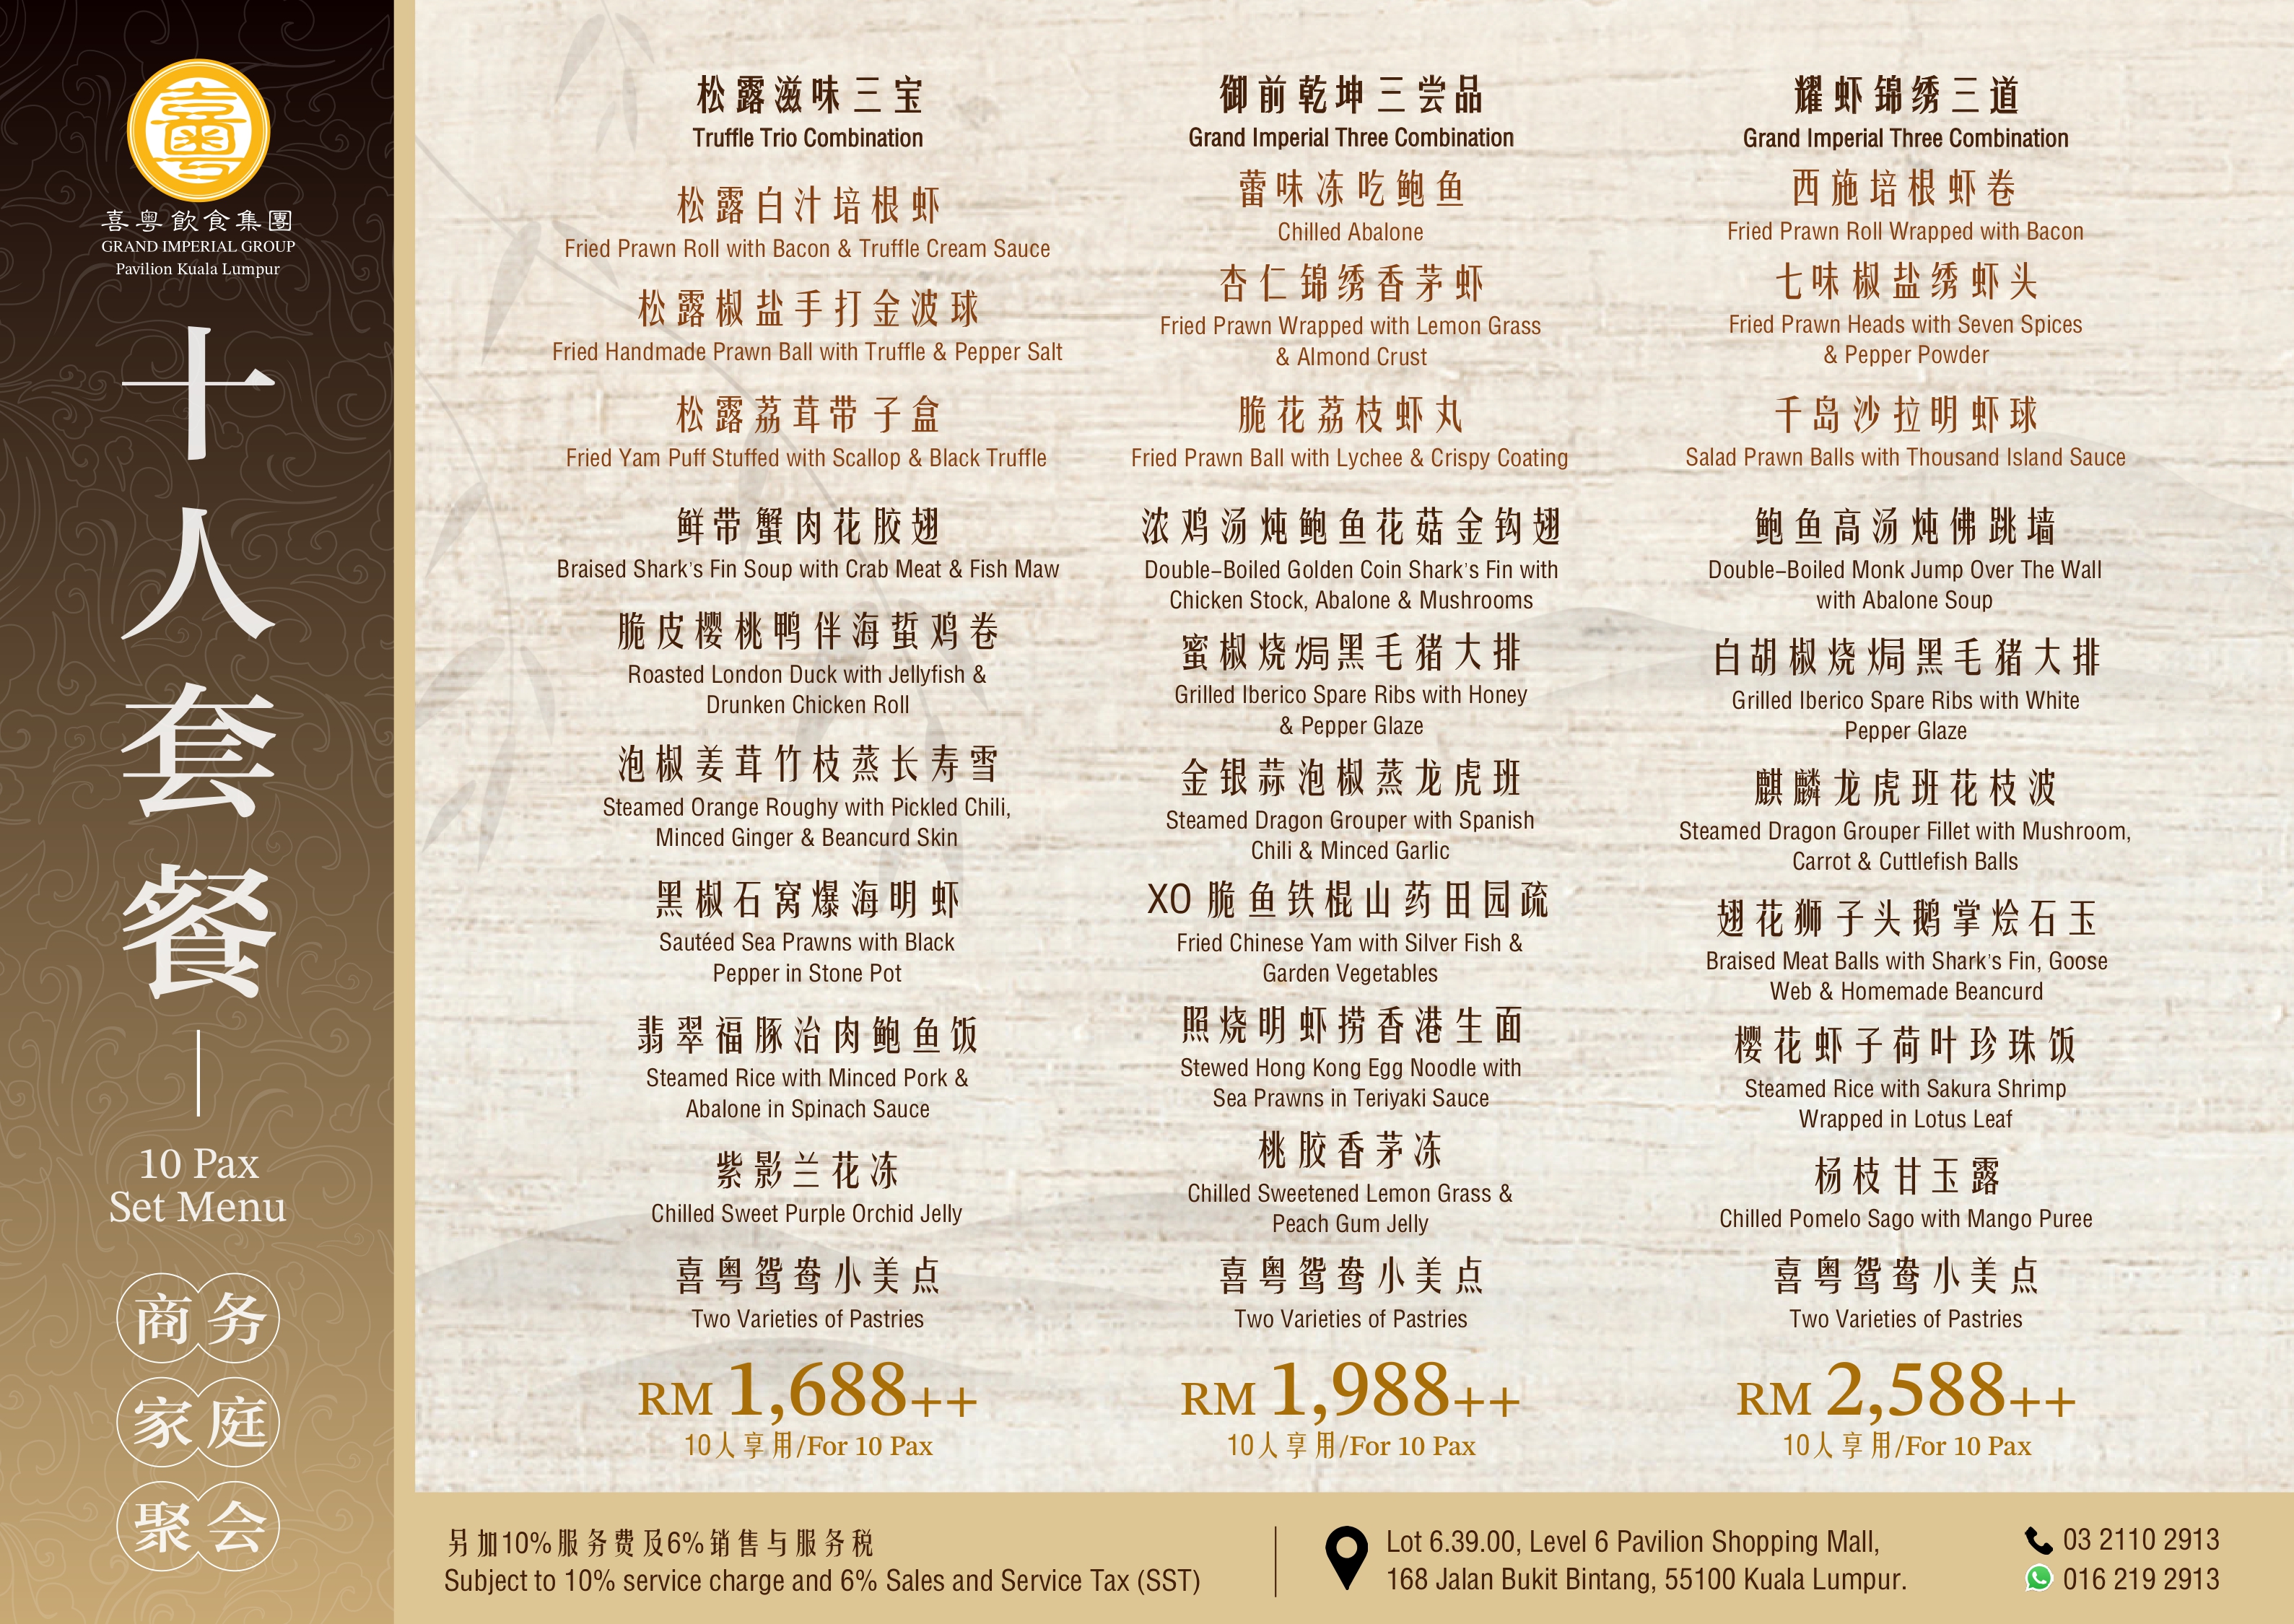 喜粤飲食集團
GRAND IMPERIAL GROUP
Pavilion Kuala Lumpur
十人套餐
10 Pax
Set Menu
商务
家庭
聚会
松露滋味三宝
Truffle Trio Combination
松露白汁培根虾
Fried Prawn Roll with Bacon & Truffle Cream Sauce
松露椒盐手打金波球
Fried Handmade Prawn Ball with Truffle & Pepper Salt
松露荔茸带子盒
Fried Yam Puff Stuffed with Scallop & Black Truffle
鲜带蟹肉花胶翅
Braised Shark's Fin Soup with Crab Meat & Fish Maw
脆皮樱桃鸭伴海蜇鸡卷
Roasted London Duck with Jellyfish &
Drunken Chicken Roll
泡椒姜茸竹枝蒸长寿雪
Steamed Orange Roughy with Pickled Chili,
Minced Ginger & Beancurd Skin
黑椒石窝爆海明虾
Sautéed Sea Prawns with Black
Pepper in Stone Pot
翡翠福豚治肉鲍鱼饭
Steamed Rice with Minced Pork &
Abalone in Spinach Sauce
紫影兰花冻
Chilled Sweet Purple Orchid Jelly
喜粤鸳鸯小美点
Two Varieties of Pastries
RM 1,688++
10人享用/For 10 Pax
御前乾坤三尝品
Grand Imperial Three Combination
蕾味冻吃鲍鱼
Chilled Abalone
杏仁锦绣香茅虾
Fried Prawn Wrapped with Lemon Grass
& Almond Crust
脆花荔枝虾丸
Fried Prawn Ball with Lychee & Crispy Coating
浓鸡汤炖鲍鱼花菇金钩翅
Double-Boiled Golden Coin Shark's Fin with
Chicken Stock, Abalone & Mushrooms
蜜椒烧焗黑毛猪大排
Grilled Iberico Spare Ribs with Honey
& Pepper Glaze
金银蒜泡椒蒸龙虎班
Steamed Dragon Grouper with Spanish
Chili & Minced Garlic
XO 脆鱼铁棍山药田园疏
Fried Chinese Yam with Silver Fish &
Garden Vegetables
照烧明虾捞香港生面
Stewed Hong Kong Egg Noodle with
Sea Prawns in Teriyaki Sauce
桃胶香茅冻
Chilled Sweetened Lemon Grass &
Peach Gum Jelly
喜粤鸳鸯小美点
Two Varieties of Pastries
RM 1,988++
10人享用/For 10 Pax
耀虾锦绣三道
Grand Imperial Three Combination
西施培根虾卷
Fried Prawn Roll Wrapped with Bacon
七味椒盐绣虾头
Fried Prawn Heads with Seven Spices
& Pepper Powder
千岛沙拉明虾球
Salad Prawn Balls with Thousand Island Sauce
鲍鱼高汤炖佛跳墙
Double-Boiled Monk Jump Over The Wall
with Abalone Soup
白胡椒烧焗黑毛猪大排
Grilled Iberico Spare Ribs with White
Pepper Glaze
麒麟龙虎班花枝波
Steamed Dragon Grouper Fillet with Mushroom,
Carrot & Cuttlefish Balls
翅花狮子头鹅掌烩石玉
Braised Meat Balls with Shark's Fin, Goose
Web & Homemade Beancurd
樱花虾子荷叶珍珠饭
Steamed Rice with Sakura Shrimp
Wrapped in Lotus Leaf
杨枝甘玉露
Chilled Pomelo Sago with Mango Puree
喜粤鸳鸯小美点
Two Varieties of Pastries
RM 2,588++
10人享用/For 10 Pax
另加10%服务费及6%销售与服务税
Subject to 10% service charge and 6% Sales and Service Tax (SST)
Lot 6.39.00, Level 6 Pavilion Shopping Mall,
168 Jalan Bukit Bintang, 55100 Kuala Lumpur.
03 2110 2913
016 219 2913